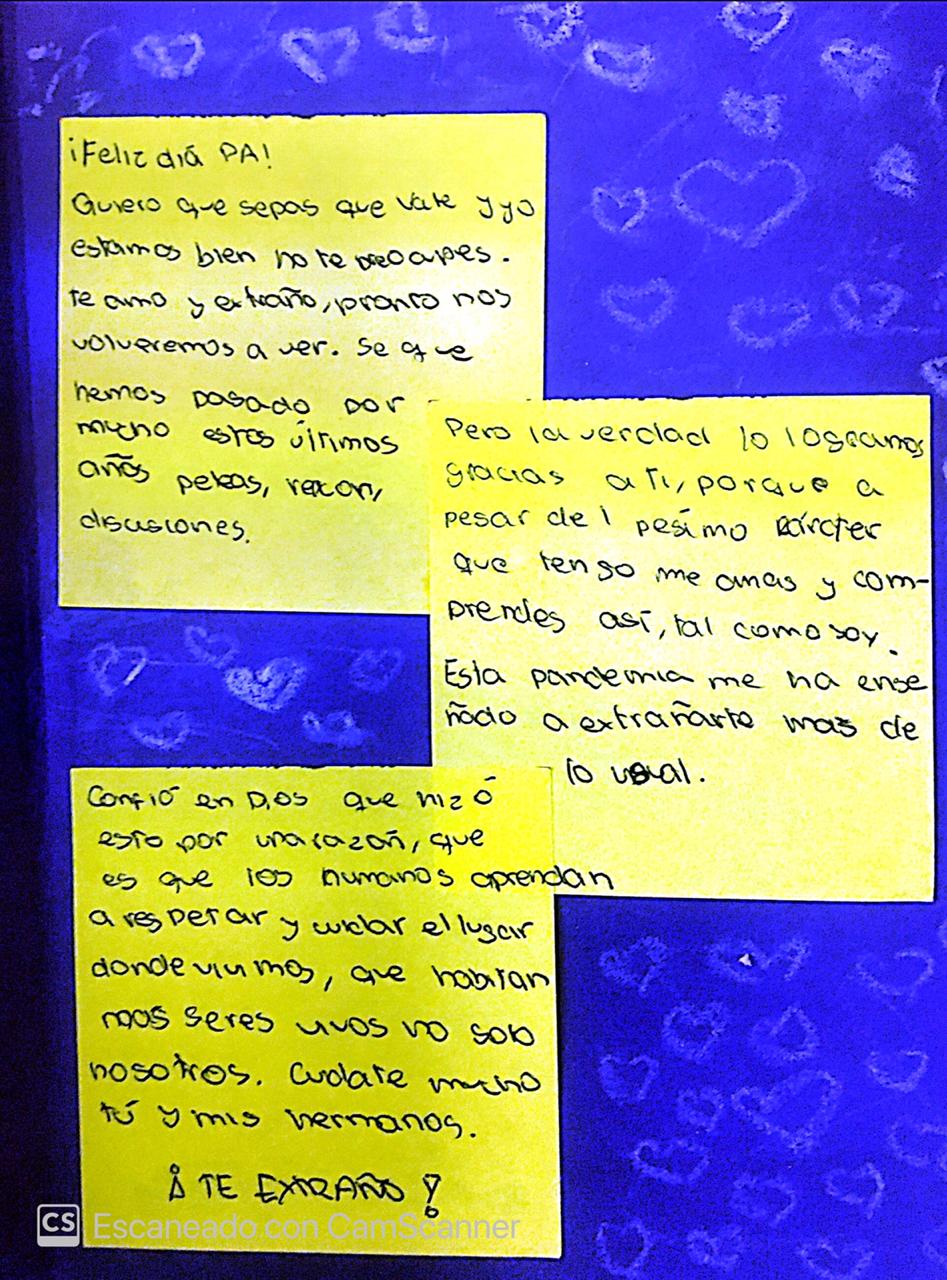 ¡Feliz diá PA!
Quiero que sepas que Vale y yo
estamos bien no te preocupes.
te amo y extraño, pronto nos
volveremos a ver. Se que
hemos pasado por
mucho estos últimos
años peleas,
discusiones.
Pero la verdad lo logramos
gracias a Ti, porque a
pesar del pesímo carácter
que tengo me amas y com-
prendes así, tal como soy.
Esta pandemia me ha ense
ñado a extrañarte mas de
lo usual.
Confió en Dios que hizó
esto por una razoñ, que
es que los humanos aprendan
a respetar y cuidar el lugar
donde vivimos, que habitan
mas seres vivos no solo
nosotros. Cuidate mucho
tú y mis hermanos.
¡TE EXTRAÑO!
CS Escaneado con CamScanner